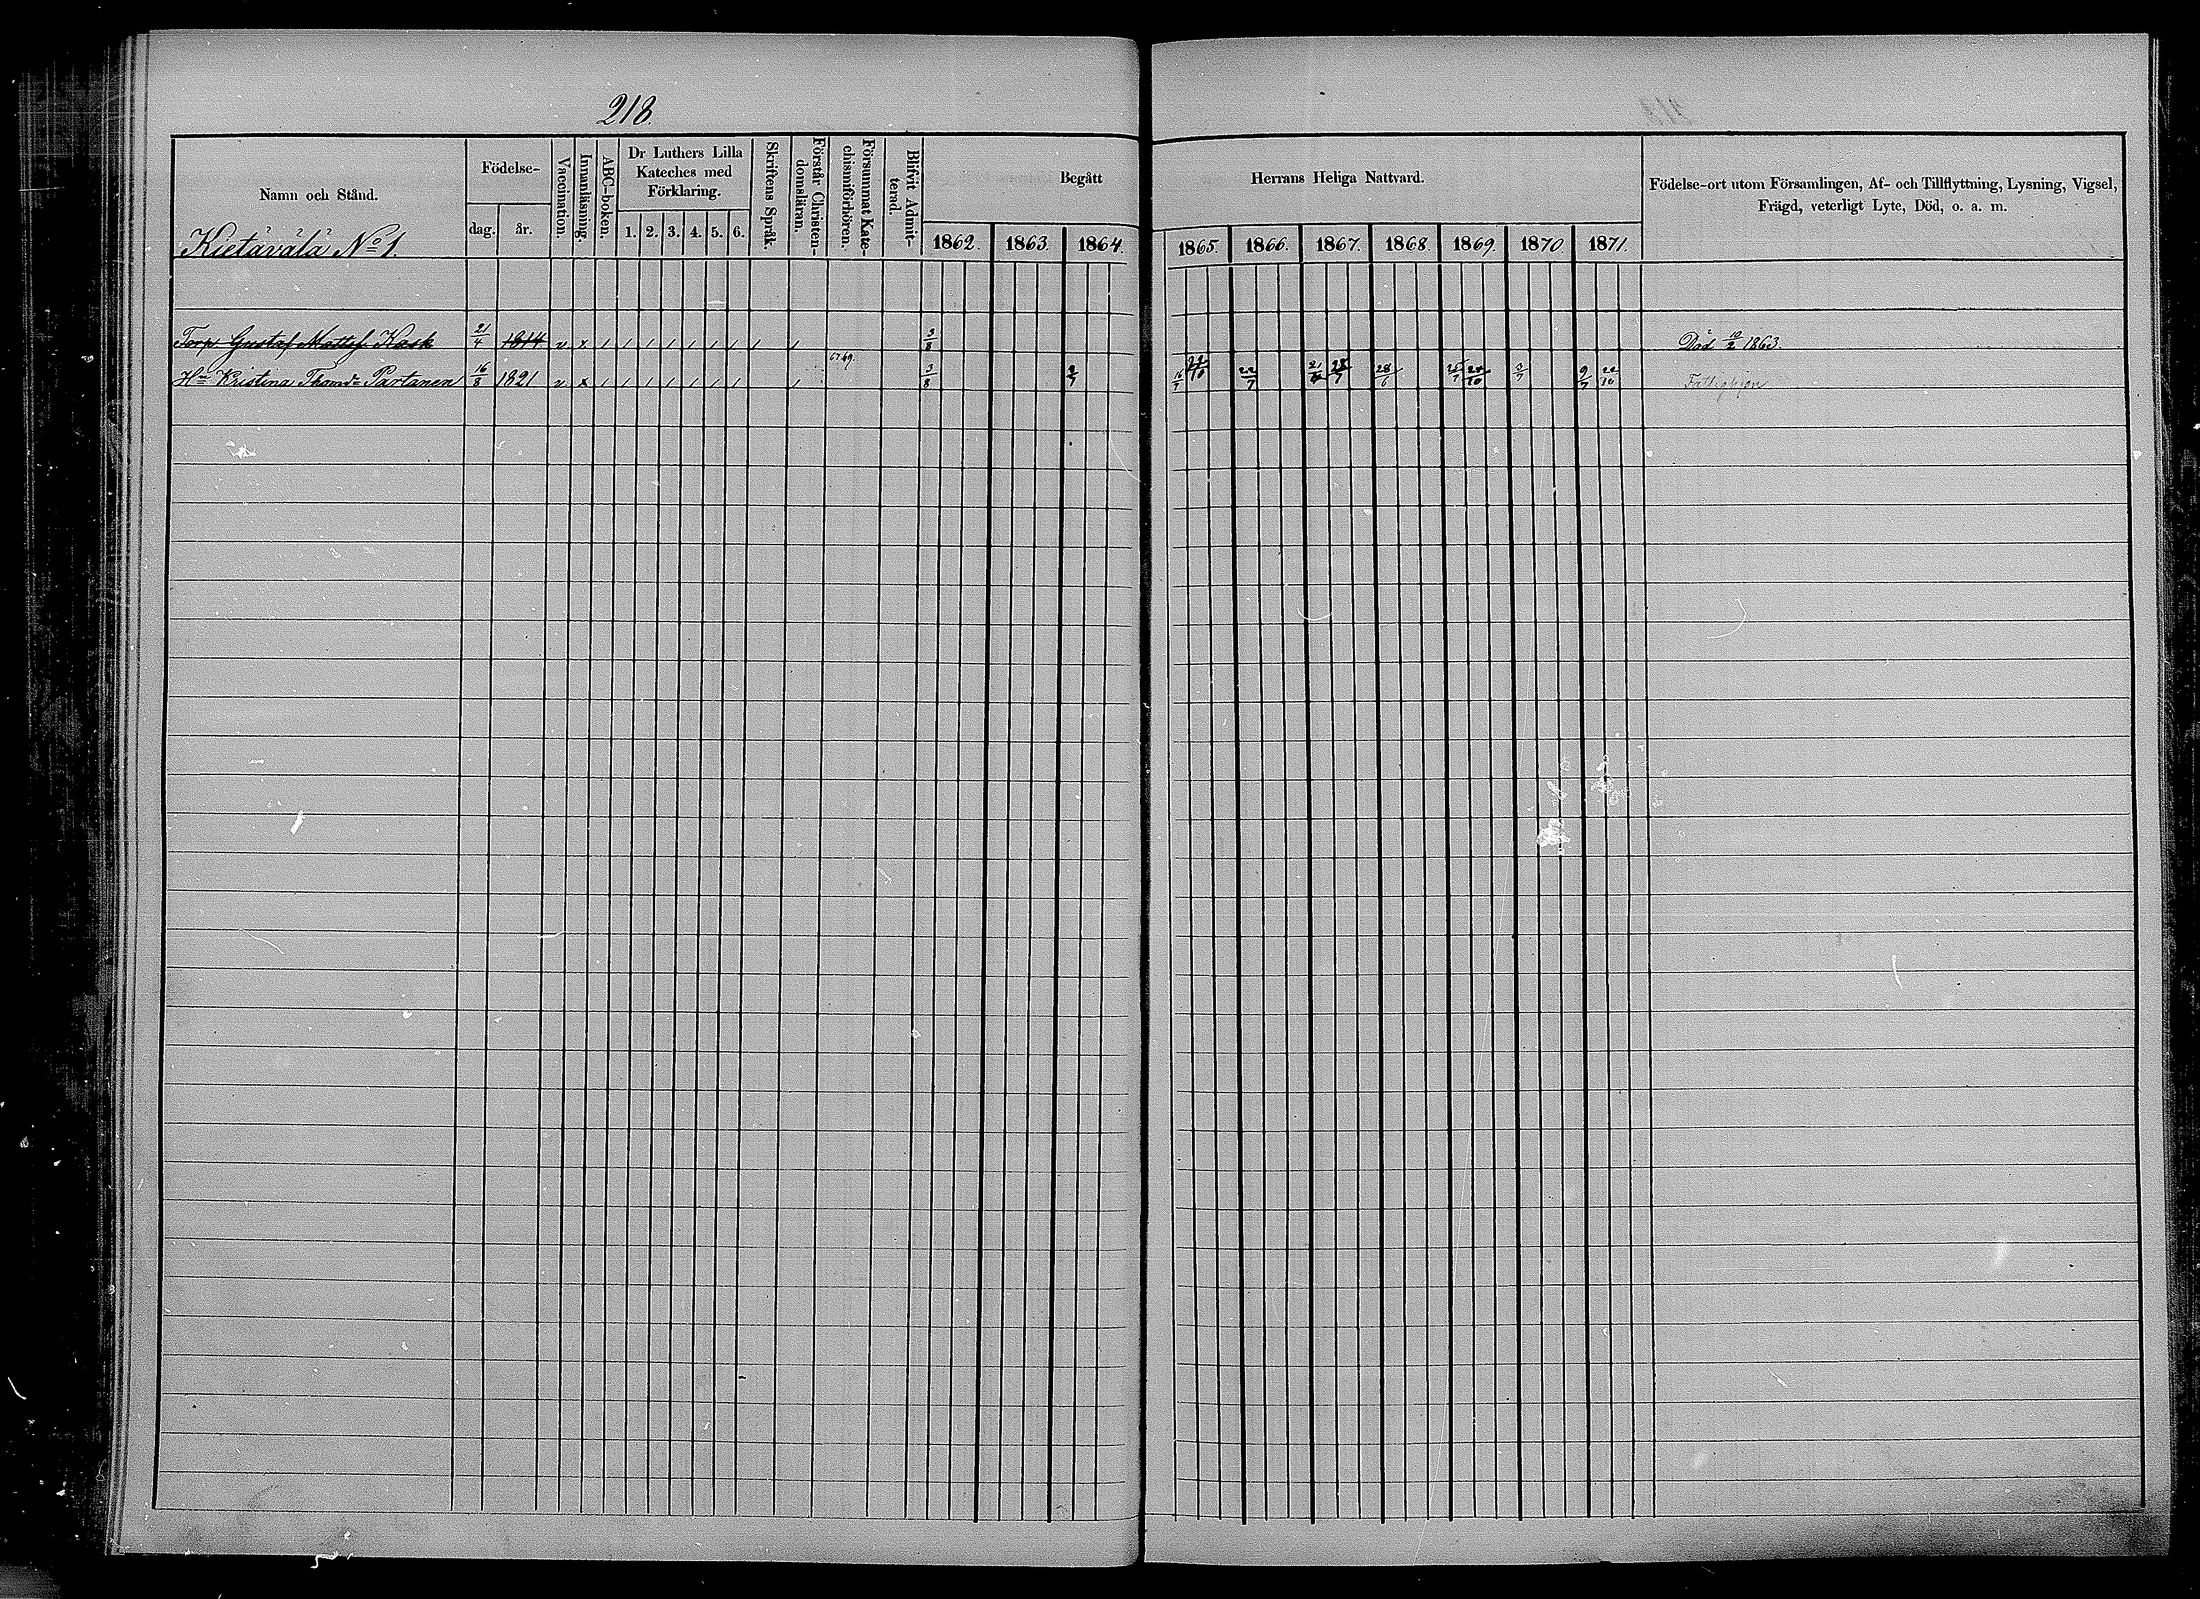 218.
Namn och Stånd.
Födelse-
dag.
år.
Vaccination.
Innanläsning.
ABC-boken.
Dr Luthers Lilla
Kateches med
Förklaring.
1. 2. 3. 4. 5. 6.
Skriftens Språk.
Förstår Christen-
domsläran.
Försummat Kate-
chismiförhören.
Blifvit Admit-
terad.
Begått Herrans Heliga Nattvard.
1862. 1863. 1864. 1865. 1866. 1867. 1868. 1869. 1870 1871.
Födelse-ort utom Församlingen, Af- och Tillflyttning, Lysning, Vigsel,
Frägd, veterligt Lyte, Död, o. a. m.
Kietäválä No 1.
Torp. Gustaf Mattsf Kask 21/4 1814 v x / / / / / / / / / 3/8 Död 10/2 1863.
Hu Kristina Thomd. Partanen 16/8 1821 v x / / / / / / / / 67 69. 3/8 2/7 16/7 22/7 28/7 28/6 25/7 3/7 9/7 22/10